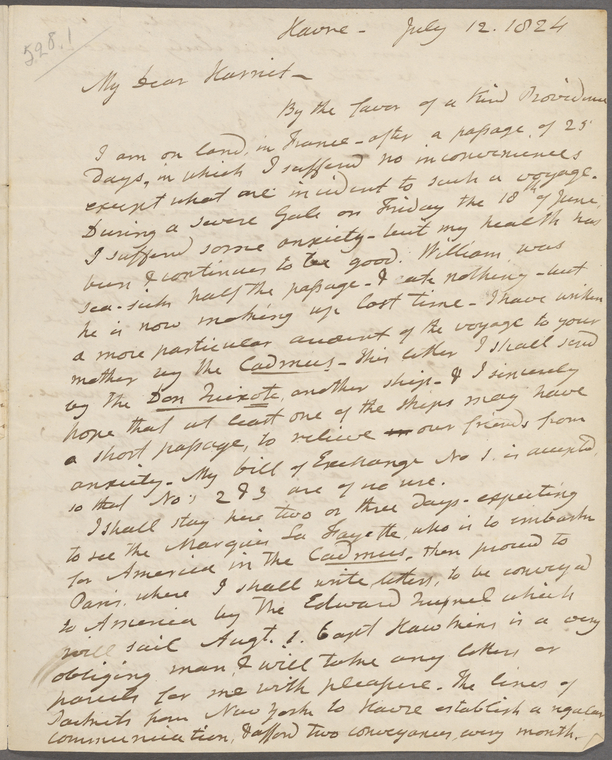 528.1
Havre - July 12. 1824
My Dear Harriet -
By the favor of a kind Providence
I am on land, in France - after a passage of 25
Days, in which I suffered no inconveniences
except what are incident to such a voyage.
During a severe Gale on Friday the 18th of June,
I suffered some anxiety - but my health has
been & continues to be good. William was
sea-sick half the passage - & ate nothing - but
he is now making up lost time - I have written
a more particular account of the voyage to your
mother by the Cadmus - this letter I shall send
by the Don Quixote, another ship - & I sincerely
hope that at least one of the ships may have
a short passage, to relieve our friends from
anxiety - My bill of Exchange No 1. is accepted,
so that No's 2 & 3 are of no use.
I shall stay here two or three days - expecting
to see the Marquis La Fayette, who is to embark
for America in the Cadmus, then proceed to
Paris, where I shall write letters, to be conveyed
to America by the Edward which
will sail Augt. 1. Capt Hawkins is a very
obliging man, & will take any letters or
parcels for me with pleasure. The lines of
Packets from New York to Havre establish a regular
communication, & afford two conveyances every month.